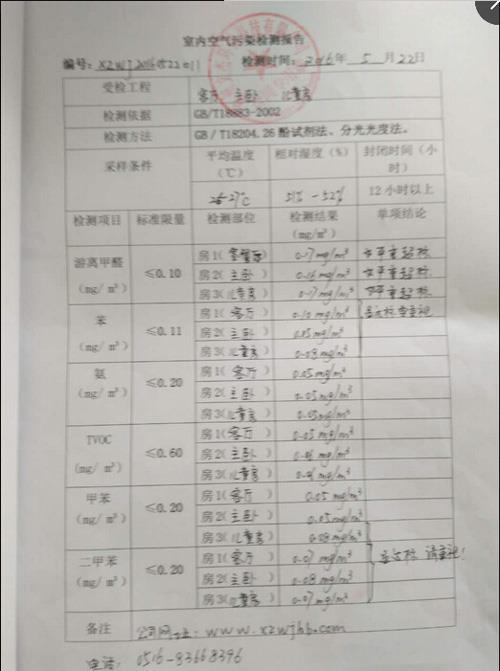 室内空气污染检测报告
编号: XZWJ 检测时间: 2016年 5 月 22日
受检工程 客厅 主卧 儿童房
检测依据 GB/T18883-2002
检测方法 GB/T18204.26 酚试剂法、分光光度法。
采样条件 平均温度(℃) 相对湿度(%) 封闭时间(小时)
27℃ 51% -52% 12小时以上
检测项目 标准限量 检测部位 检测结果(mg/m³) 单项结论
游离甲醛(mg/m³) ≤0.10 房1(客厅) 0.17mg/m³ 严重超标
房2(主卧) 0.16mg/m³ 严重超标
房3(儿童房) 0.17mg/m³ 严重超标
苯(mg/m³) ≤0.11 房1(客厅) 0.10mg/m³
房2(主卧) 0.05mg/m³
房3(儿童房) 0.08mg/m³
氨(mg/m³) ≤0.20 房1(客厅) 0.05mg/m³
房2(主卧) 0.05mg/m³
房3(儿童房) 0.05mg/m³
TVOC(mg/m³) ≤0.60 房1(客厅) 0.05mg/m³
房2(主卧) 0.06mg/m³
房3(儿童房) 0.06mg/m³
甲苯(mg/m³) ≤0.20 房1(客厅) 0.05mg/m³
房2(主卧) 0.05mg/m³
房3(儿童房) 0.08mg/m³
二甲苯(mg/m³) ≤0.20 房1(客厅) 0.07mg/m³ 请重视!
房2(主卧) 0.08mg/m³
房3(儿童房) 0.07mg/m³
备注 公司网址: www.xzwjhb.com
电话: 0516-83668396